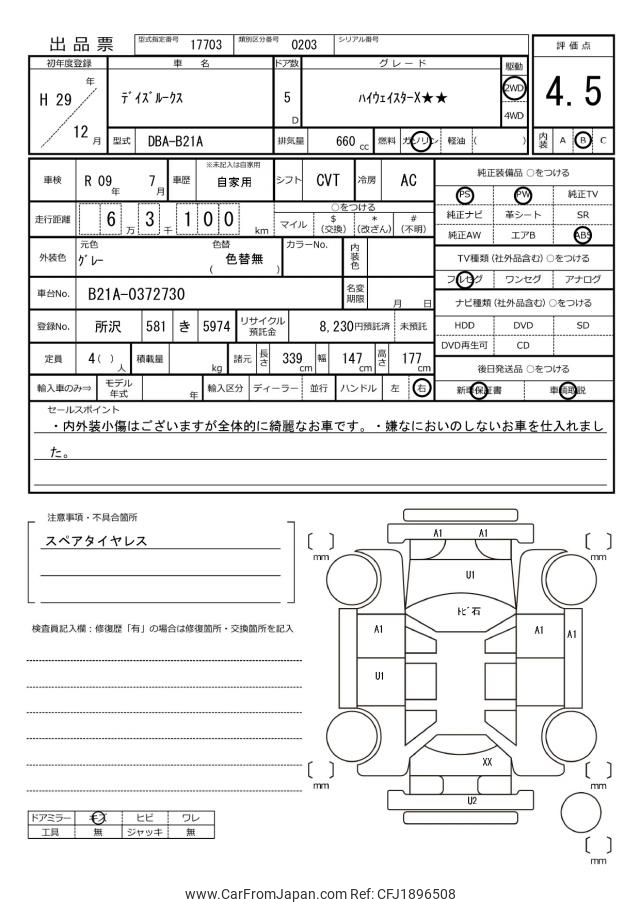 出品票 型式指定番号 17703 類別区分番号 0203 シリアル番号
評価点
4.5
内装 A B C
初年度登録 車名 ドア数 グレード 駆動
H 29 年 12 月
デイズルークス 5 D ハイウェイスターX★★ 2WD 4WD
型式 DBA-B21A 排気量 660 cc 燃料 ガソリン 軽油 ( )
車検 R 09 年 7 月 車歴 ※未記入は自家用 自家用 シフト CVT 冷房 AC
走行距離 6 万 3 千 1 0 0 km
○をつける
マイル $ (交換) * (改ざん) # (不明)
外装色 元色 グレー 色替 ( 色替無 ) カラーNo. 内装色
車台No. B21A-0372730 名変期限 月 日
登録No. 所沢 581 き 5974 リサイクル預託金 8,230円預託済 未預託
定員 4( ) 人 積載量 kg 諸元 長さ 339 cm 幅 147 cm 高さ 177 cm
輸入車のみ⇒ モデル年式 年 輸入区分 ディーラー 並行 ハンドル 左 右
純正装備品 ○をつける
PS PW 純正TV
純正ナビ 革シート SR
純正AW エアB ABS
TV種類 (社外品含む) ○をつける
フルセグ ワンセグ アナログ
ナビ種類 (社外品含む) ○をつける
HDD DVD SD
DVD再生可 CD
後日発送品 ○をつける
新車保証書 車輌取説
セールスポイント
・内外装小傷はございますが全体的に綺麗なお車です。・嫌なにおいのしないお車を仕入れまし
た。
注意事項・不具合箇所
スペアタイヤレス
検査員記入欄：修復歴「有」の場合は修復箇所・交換箇所を記入
ドアミラー キズ ヒビ ワレ
工具 無 ジャッキ 無
A1 A1
mm mm
U1
トビ石
A1 A1 A1
U1
XX
mm mm
U2
mm
www.CarFromJapan.com Ref: CFJ1896508